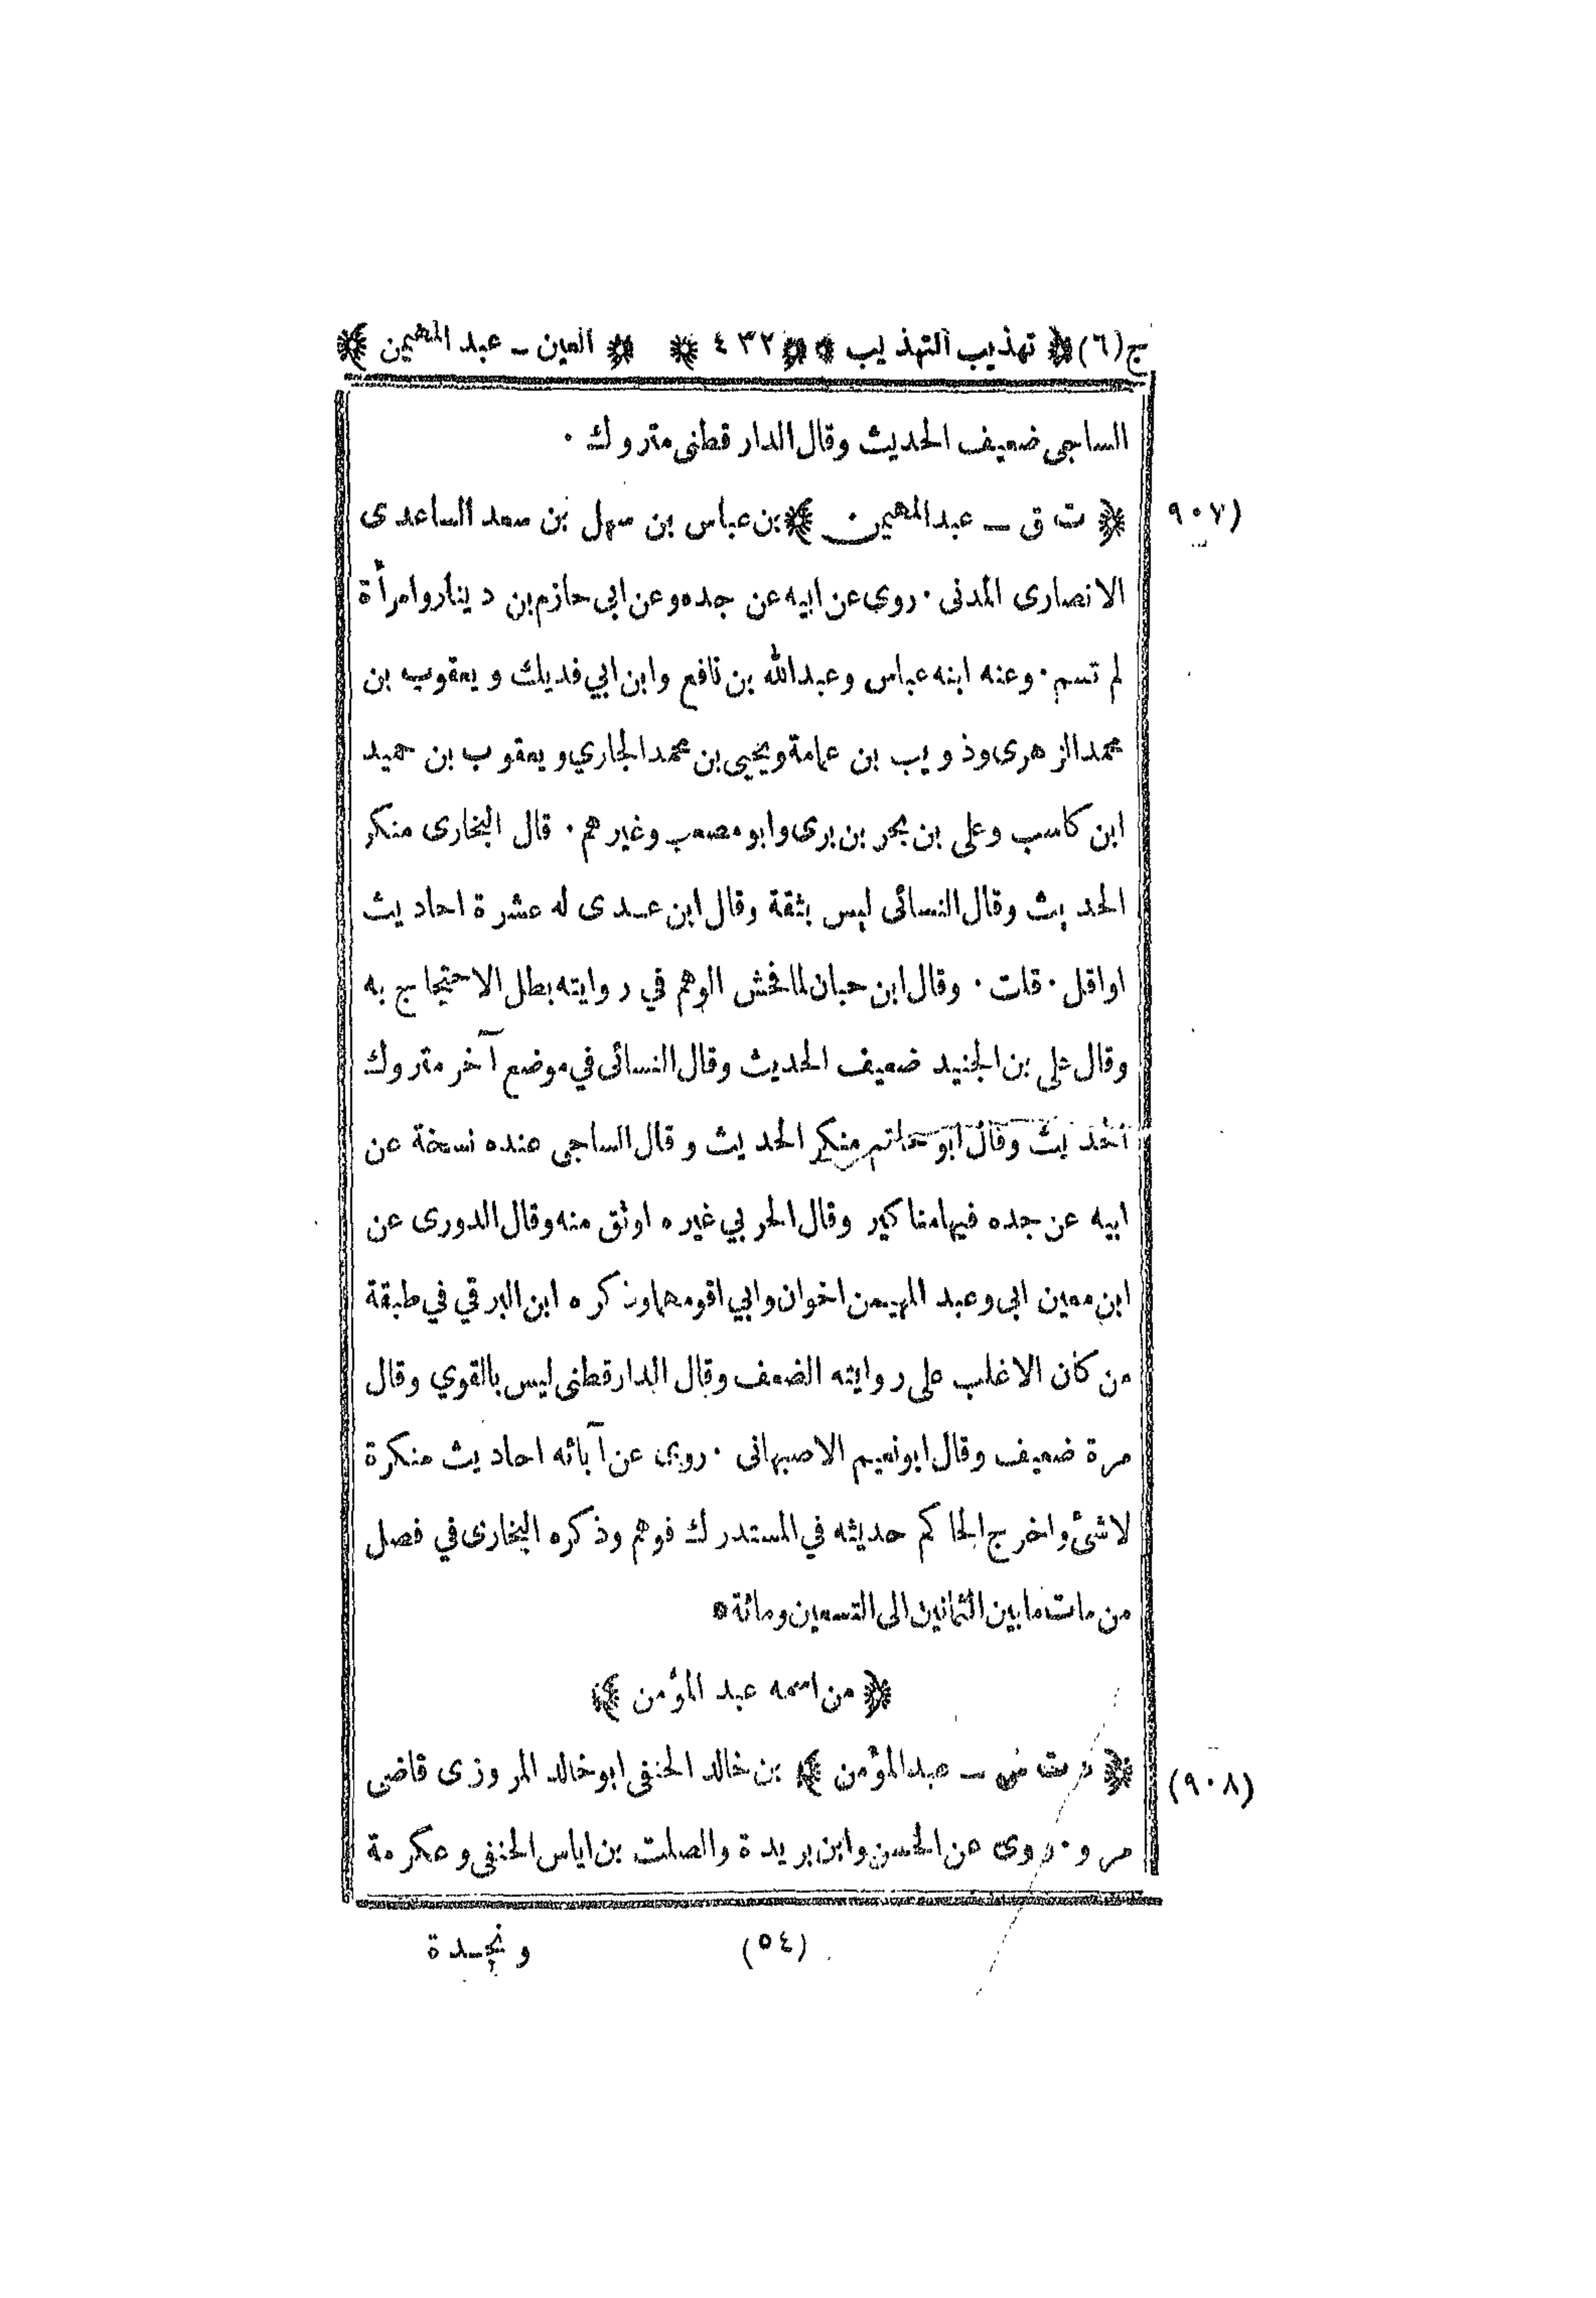 ج(٦) ﴿ تهذيب التهذيب ﴾ ﴿ ٤٣٢ ﴾ ﴿ العين ـ عبد المهيمن ﴾
الساجى ضعيف الحديث وقال الدار قطنى متروك ٠
(٩٠٧ ﴿ ت ق ـ عبد المهيمن ﴾ بن عباس بن سهل بن سعد الساعدى
الانصارى المدنى ٠ روى عن ابيه عن جده وعن ابي حازم بن دينار وامرأة
لم تسم ٠ وعنه ابنه عباس وعبد الله بن نافع وابن ابي فديك ويعقوب بن
محمد الزهرى وذويب بن عمامة ويحيى بن محمد الجاري ويعقوب بن حميد
ابن كاسب وعلى بن بحر بن برى وابو مصعب وغيرهم ٠ قال البخارى منكر
الحديث وقال النسائى ليس بثقة وقال ابن عدى له عشرة احاديث
او اقل ٠ قلت ٠ وقال ابن حبان لما فحش الوهم في روايته بطل الاحتجاج به
وقال على بن الجنيد ضعيف الحديث وقال النسائى في موضع آخر متروك
الحديث وقال ابو حاتم منكر الحديث وقال الساجى عنده نسخة عن
ابيه عن جده فيها مناكير وقال الحربي غيره اوثق منه وقال الدورى عن
ابن معين ابى وعبد المهيمن اخوان وابي اقومهما وذكره ابن البرقي في طبقة
من كان الاغلب على روايته الضعف وقال الدارقطنى ليس بالقوي وقال
مرة ضعيف وقال ابو نعيم الاصبهانى ٠ روى عن آبائه احاديث منكرة
لا شئ واخرج الحاكم حديثه في المستدرك فوهم وذكره البخارى في فصل
من مات ما بين الثمانين الى التسعين ومائة *
﴿ من اسمه عبد المؤمن ﴾
(٩٠٨) ﴿ د ت س ـ عبد المؤمن ﴾ بن خالد الحنفى ابو خالد المروزى قاضى
مرو ٠ روى عن الحسن وابن بريدة والصلت بن اياس الحنفى وعكرمة
(٥٤) ونجدة